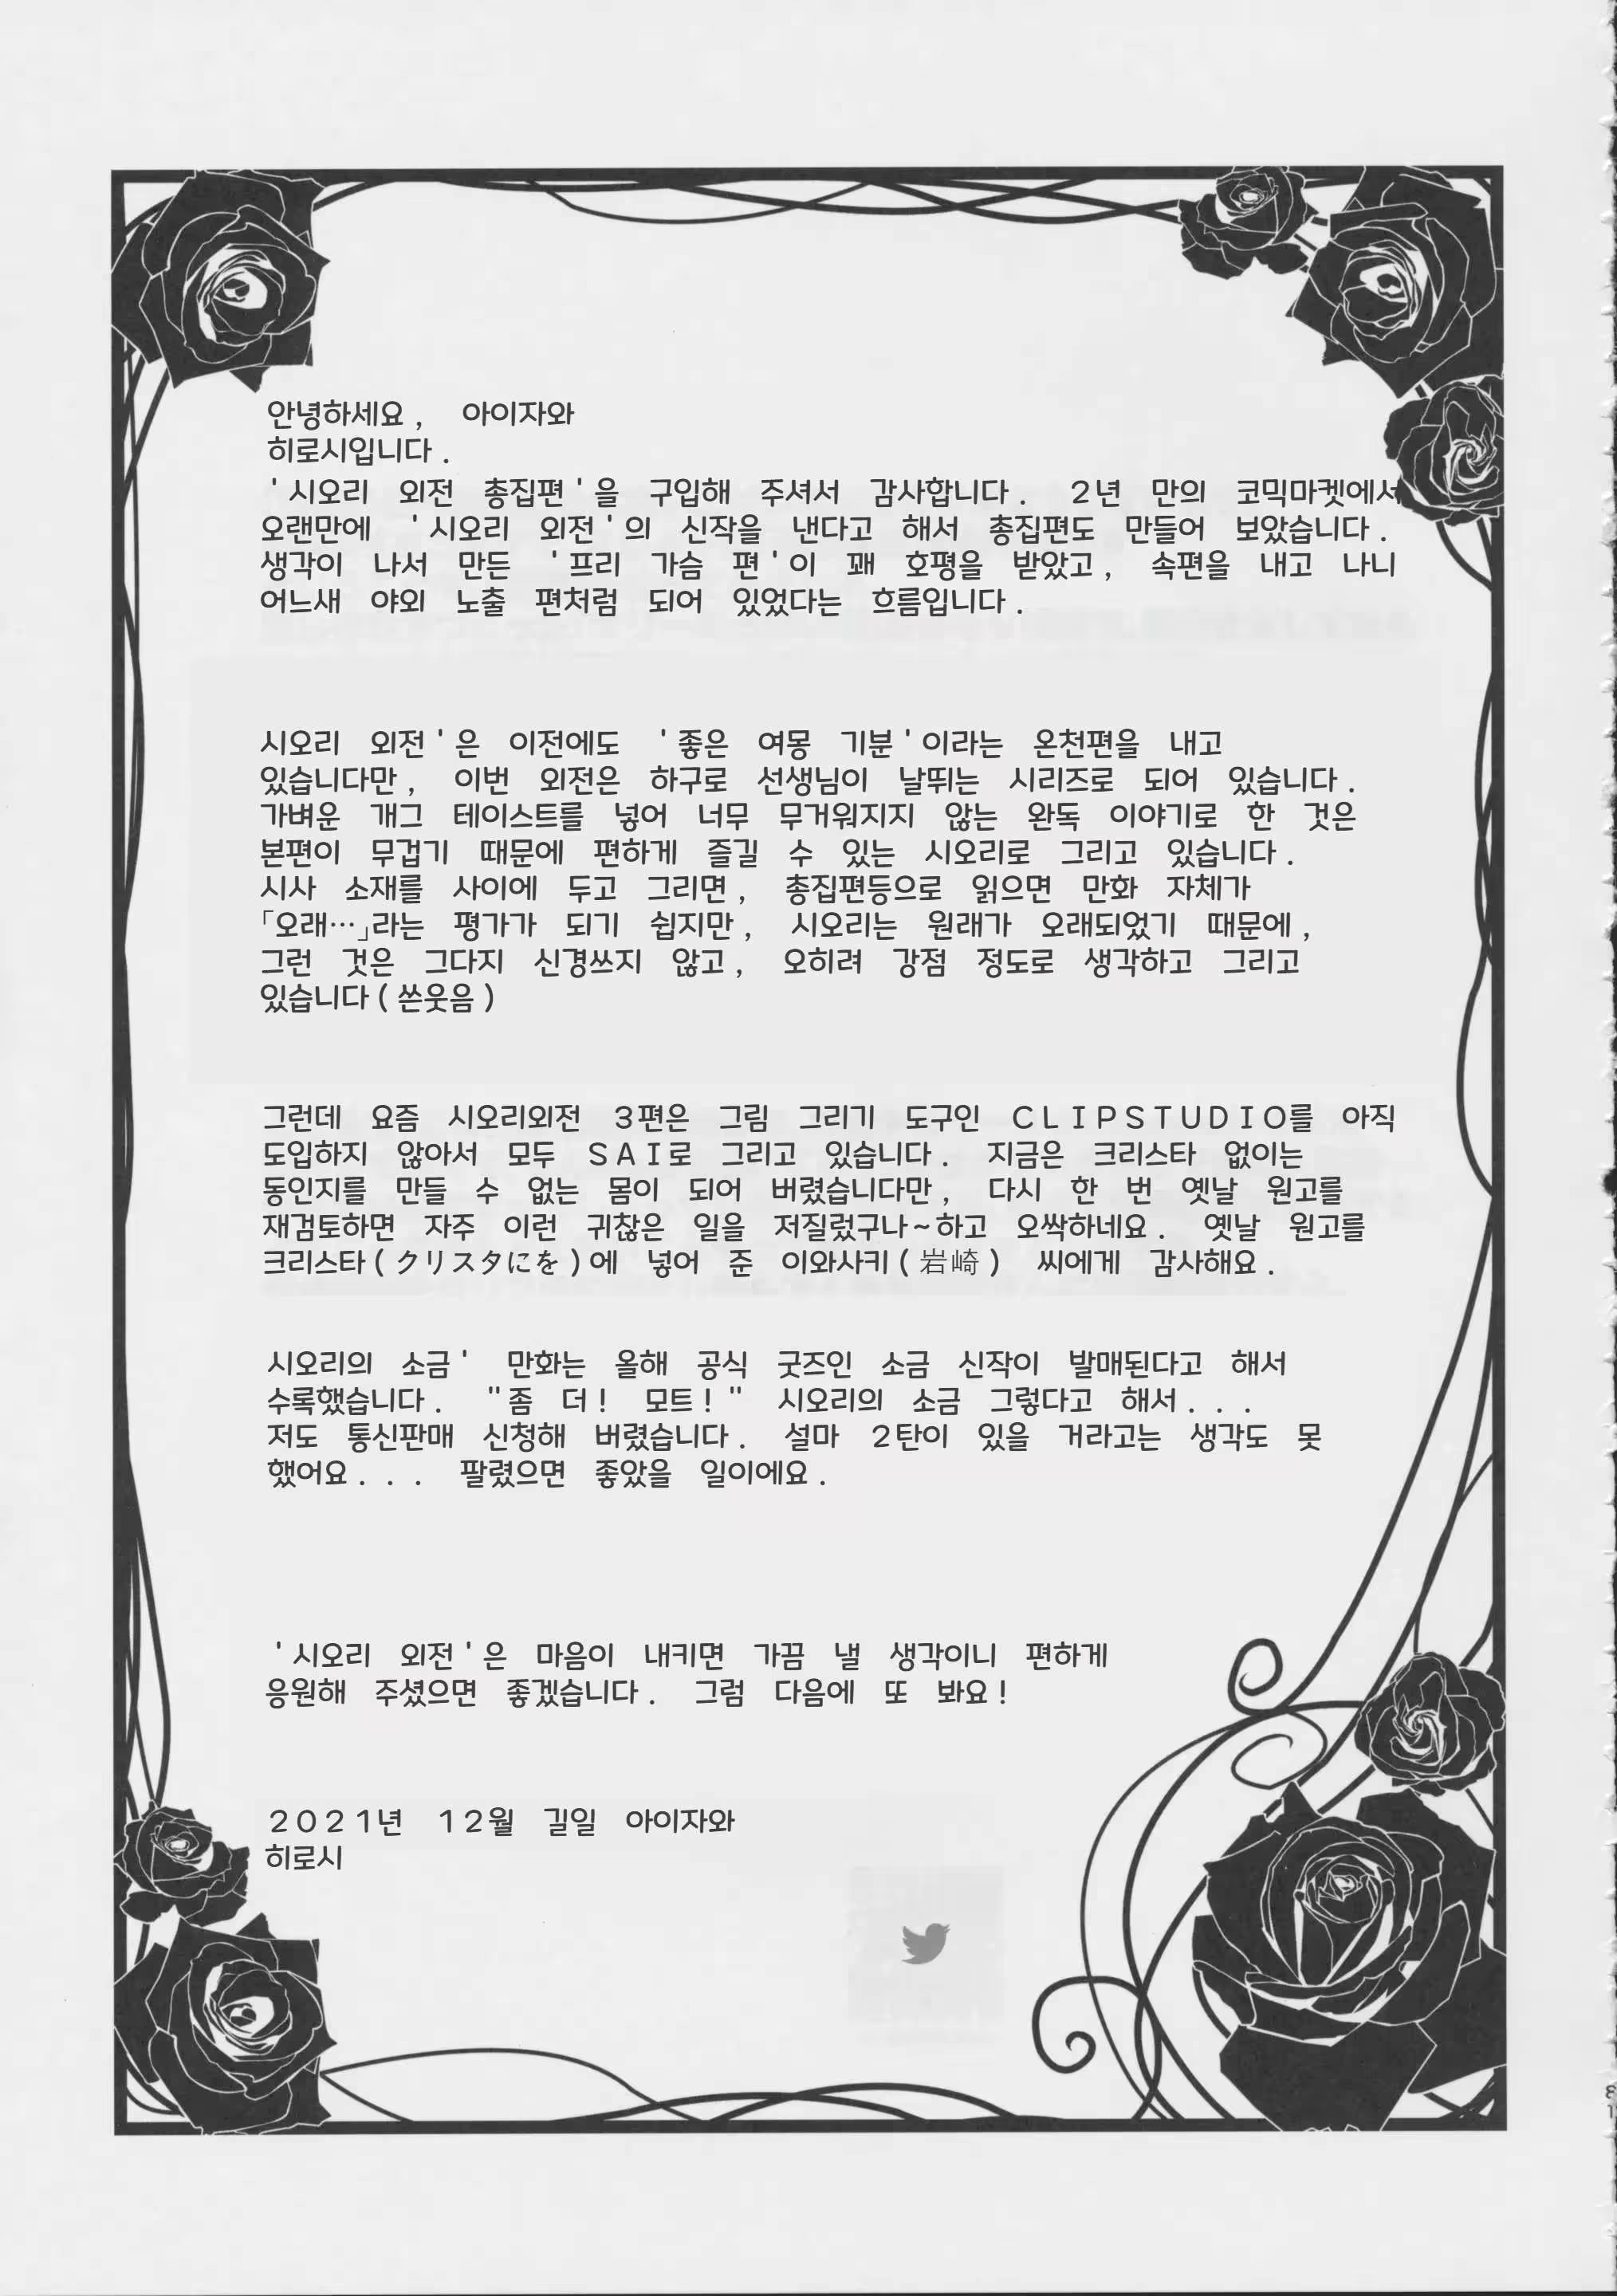 안녕하세요, 아이자와
히로시입니다.
'시오리 외전 총집편'을 구입해 주셔서 감사합니다. 2년 만의 코믹마켓에서
오랜만에 '시오리 외전'의 신작을 낸다고 해서 총집편도 만들어 보았습니다.
생각이 나서 만든 '프리 가슴 편'이 꽤 호평을 받았고, 속편을 내고 나니
어느새 야외 노출 편처럼 되어 있었다는 흐름입니다.
시오리 외전'은 이전에도 '좋은 여몽 기분'이라는 온천편을 내고
있습니다만, 이번 외전은 하구로 선생님이 날뛰는 시리즈로 되어 있습니다.
가벼운 개그 테이스트를 넣어 너무 무거워지지 않는 완독 이야기로 한 것은
본편이 무겁기 때문에 편하게 즐길 수 있는 시오리로 그리고 있습니다.
시사 소재를 사이에 두고 그리면, 총집편등으로 읽으면 만화 자체가
「오래…」라는 평가가 되기 쉽지만, 시오리는 원래가 오래되었기 때문에,
그런 것은 그다지 신경쓰지 않고, 오히려 강점 정도로 생각하고 그리고
있습니다(쓴웃음)
그런데 요즘 시오리외전 3편은 그림 그리기 도구인 CLIPSTUDIO를 아직
도입하지 않아서 모두 SAI로 그리고 있습니다. 지금은 크리스타 없이는
동인지를 만들 수 없는 몸이 되어 버렸습니다만, 다시 한 번 옛날 원고를
재검토하면 자주 이런 귀찮은 일을 저질렀구나~하고 오싹하네요. 옛날 원고를
크리스타(クリスタにを)에 넣어 준 이와사키(岩崎) 씨에게 감사해요.
시오리의 소금' 만화는 올해 공식 굿즈인 소금 신작이 발매된다고 해서
수록했습니다. "좀 더! 모트!" 시오리의 소금 그렇다고 해서...
저도 통신판매 신청해 버렸습니다. 설마 2탄이 있을 거라고는 생각도 못
했어요... 팔렸으면 좋았을 일이에요.
'시오리 외전'은 마음이 내키면 가끔 낼 생각이니 편하게
응원해 주셨으면 좋겠습니다. 그럼 다음에 또 봐요!
2021년 12월 길일 아이자와
히로시